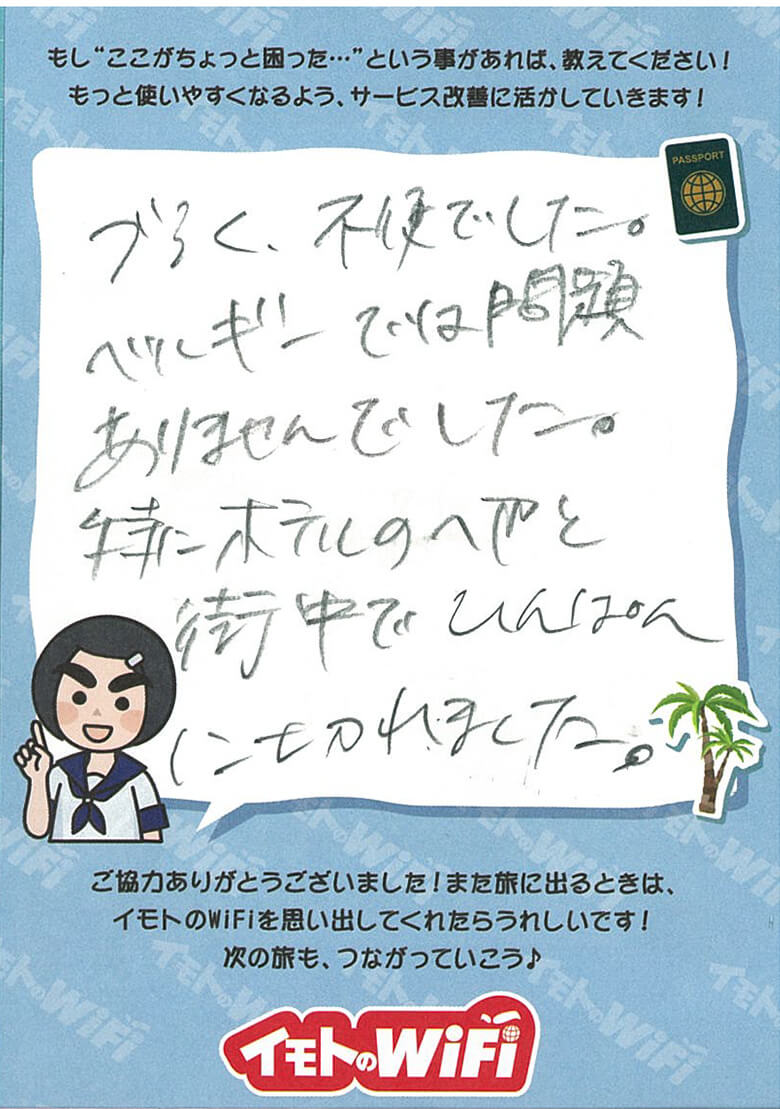 もし“ここがちょっと困った…”という事があれば、教えてください！
もっと使いやすくなるよう、サービス改善に活かしていきます！
PASSPORT
づらく、不便でした。
ベルギーでは問題
ありませんでした。
特にホテルのへやと
街中でひんぱん
に切れました。
ご協力ありがとうございました！また旅に出るときは、
イモトのWiFiを思い出してくれたらうれしいです！
次の旅も、つながっていこう♪
イモトのWiFi